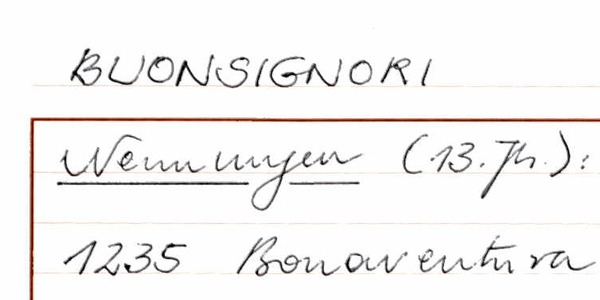 BUONSIGNORI
Nennungen (13. Jh.):
1235 Bonaventura